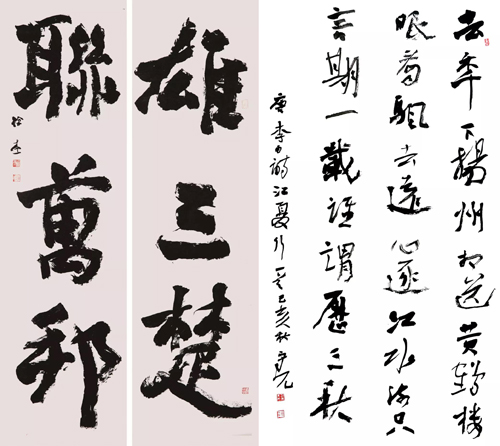 去年下揚州相送黄鶴樓
眼看帆去遠心逐江水流只
言期一載誰謂歷三秋
唐李白詩江夏行己亥秋
雄三楚
聯萬邦